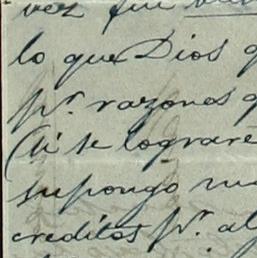 vez fui
lo que Dios q
pr. razones q
(si se lograre
supongo
creditos pr. al